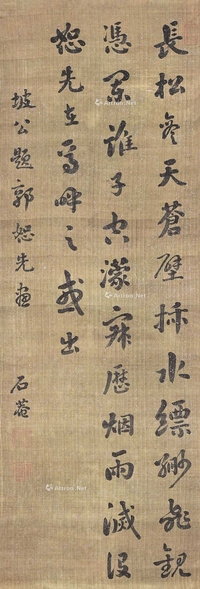 長松參天蒼壁插水縹緲飛觀
憑闌誰子空濛寂歷烟雨滅沒
恕先在焉呼之或出
坡公題郭恕先畫
石菴